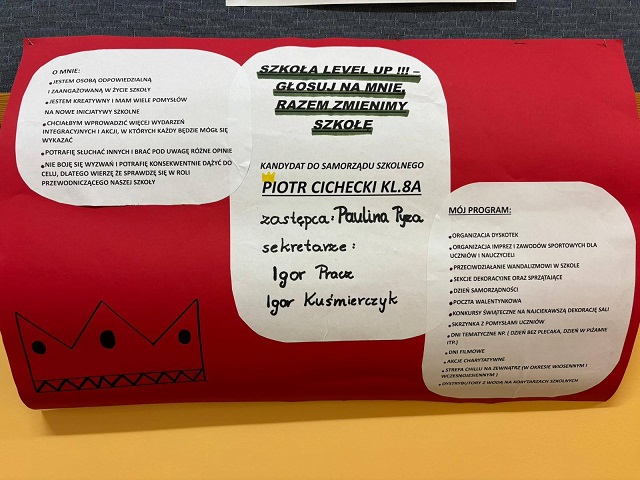 O MNIE:
•JESTEM OSOBĄ ODPOWIEDZIALNĄ
I ZAANGAŻOWANĄ W ŻYCIE SZKOŁY
•JESTEM KREATYWNY I MAM WIELE POMYSŁÓW
NA NOWE INICJATYWY SZKOLNE
•CHCIAŁBYM WPROWADZIĆ WIĘCEJ WYDARZEŃ
INTEGRACYJNYCH I AKCJI, W KTÓRYCH KAŻDY BĘDZIE MÓGŁ SIĘ
WYKAZAĆ
•POTRAFIĘ SŁUCHAĆ INNYCH I BRAĆ POD UWAGĘ RÓŻNE OPINIE
•NIE BOJĘ SIĘ WYZWAŃ I POTRAFIĘ KONSEKWENTNIE DĄŻYĆ DO
CELU, DLATEGO WIERZĘ ŻE SPRAWDZĘ SIĘ W ROLI
PRZEWODNICZĄCEGO NASZEJ SZKOŁY
SZKOŁA LEVEL UP !!! –
GŁOSUJ NA MNIE,
RAZEM ZMIENIMY
SZKOŁĘ
KANDYDAT DO SAMORZĄDU SZKOLNEGO
PIOTR CICHECKI KL.8A
zastępca: Paulina Pyza
sekretarze:
Igor Pracz
Igor Kuśmierczyk
MÓJ PROGRAM:
•ORGANIZACJA DYSKOTEK
•ORGANIZACJA IMPREZ I ZAWODÓW SPORTOWYCH DLA
UCZNIÓW I NAUCZYCIELI
•PRZECIWDZIAŁANIE WANDALIZMOWI W SZKOLE
•SEKCJE DEKORACYJNE ORAZ SPRZĄTAJĄCE
•DZIEŃ SAMORZĄDNOŚCI
•POCZTA WALENTYNKOWA
•KONKURSY ŚWIĄTECZNE NA NAJCIEKAWSZĄ DEKORACJĘ SALI
•SKRZYNKA Z POMYSŁAMI UCZNIÓW
•DNI TEMATYCZNE NP. ( DZIEŃ BEZ PLECAKA, DZIEŃ W PIŻAMIE
ITP.)
•DNI FILMOWE
•AKCJE CHARYTATYWNE
•STREFA CHILLU NA ZEWNĄTRZ (W OKRESIE WIOSENNYM I
WCZESNOJESIENNYM )
•DYSTRYBUTORY Z WODĄ NA KORYTARZACH SZKOLNYCH